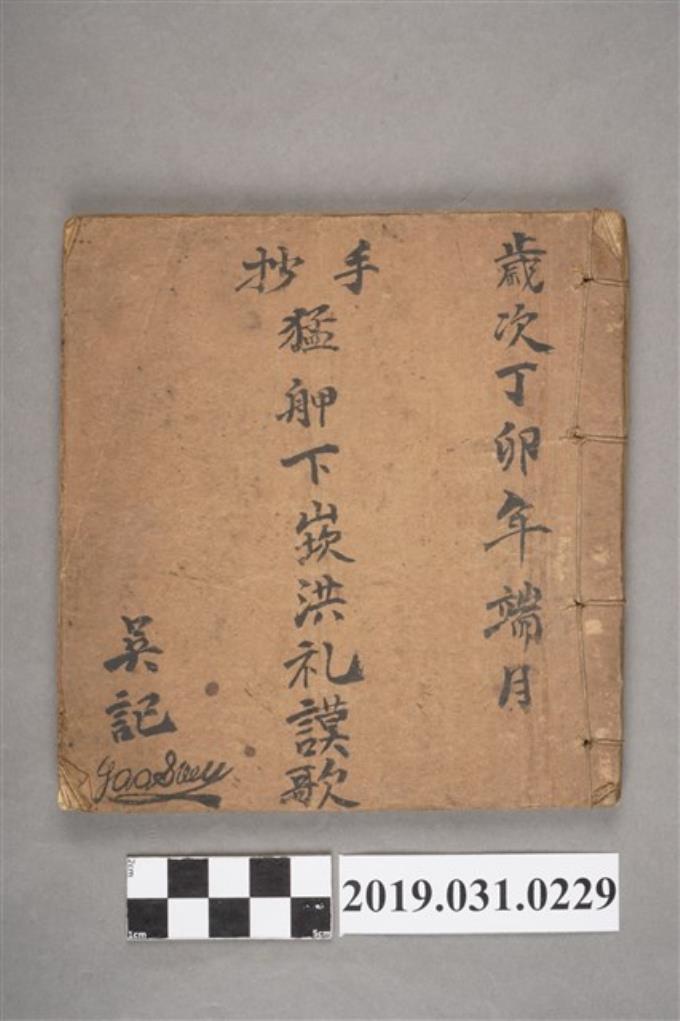 歲次丁卯年端月
手抄
猛舺下崁洪礼謨歌
吳記
2019.031.0229
2cm
1cm
5cm